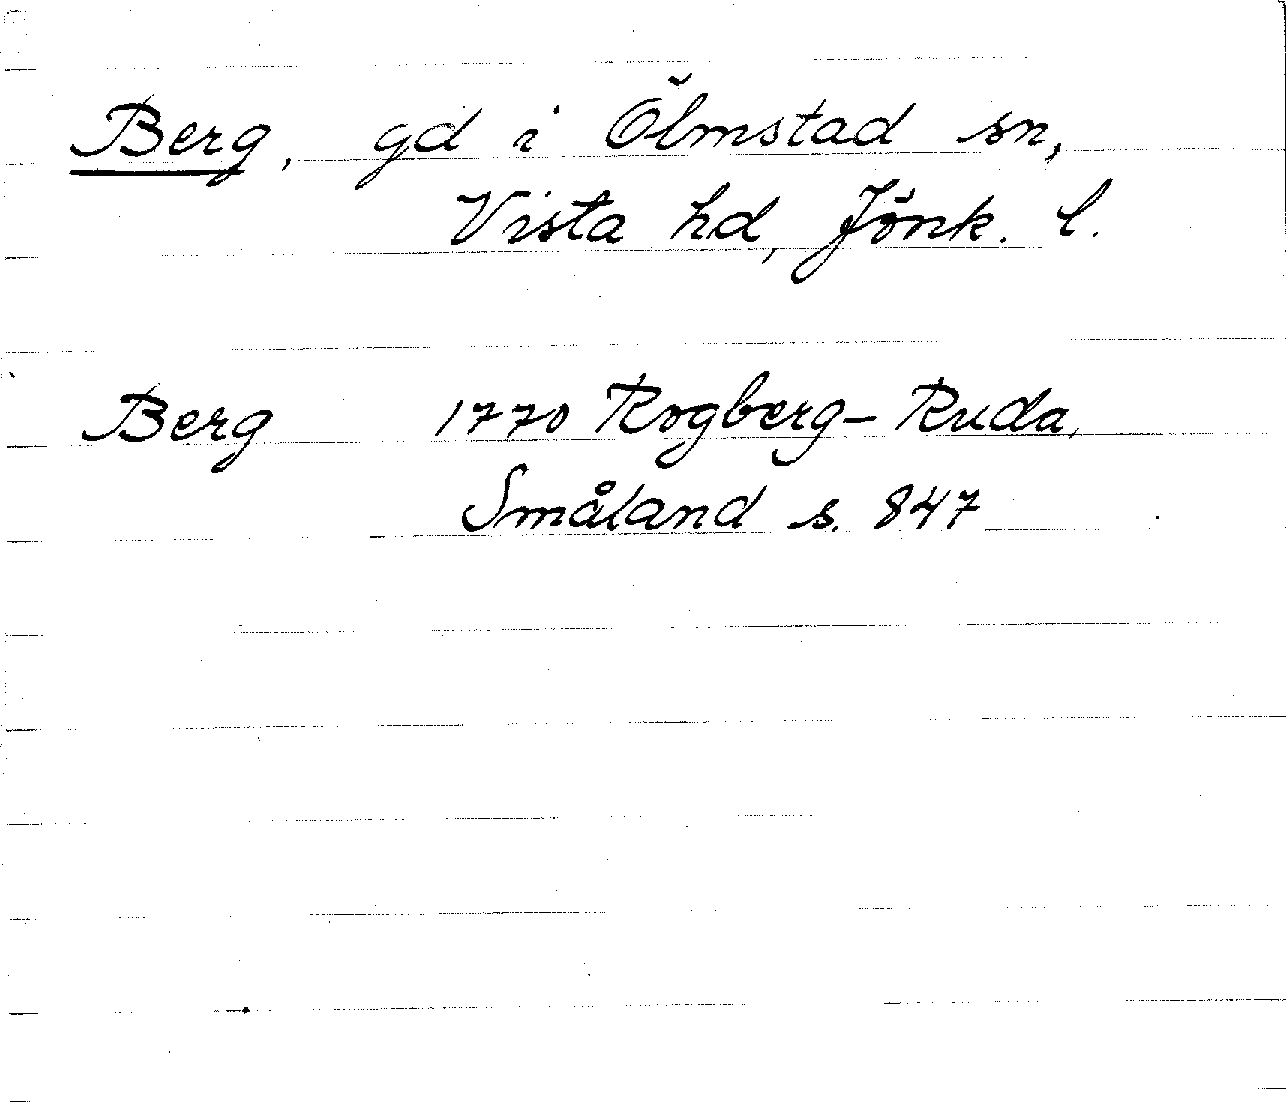 Berg, gd i Ölmstad sn,
Vista hd, Jönk. l.
Berg 1770 Rogberg-Ruda,
Småland s. 847